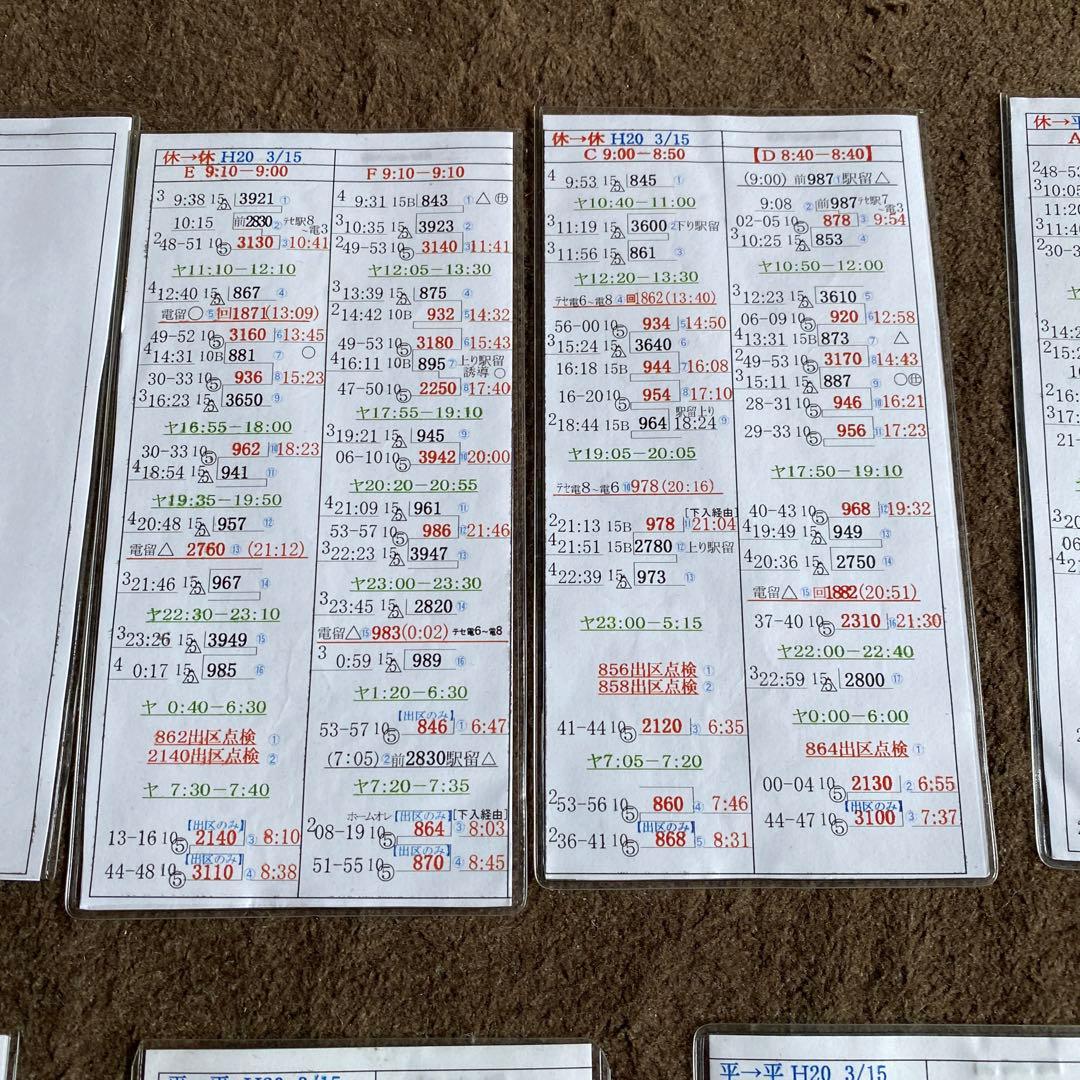 休→休 H20 3/15
E 9:10－9:00
3 9:38 15 3921 ①
10:15 前2830 ② テセ駅8～電3
2 48-51 10⑤ 3130 ③ 10:41
ヤ11:10－12:10
4 12:40 15 867 ④
電留○ ⑤ 回1871(13:09)
49-52 10⑤ 3160 ⑥ 13:45
4 14:31 10B 881 ⑦ ○
30-33 10⑤ 936 ⑧ 15:23
3 16:23 15 3650 ⑨
ヤ16:55－18:00
30-33 10⑤ 962 ⑩ 18:23
4 18:54 15 941 ⑪
ヤ19:35－19:50
4 20:48 15 957 ⑫
電留△ 2760 ⑬ (21:12)
3 21:46 15 967 ⑭
ヤ22:30－23:10
3 23:26 15 3949 ⑮
4 0:17 15 985 ⑯
ヤ 0:40－6:30
862出区点検 ①
2140出区点検 ②
ヤ 7:30－7:40
【出区のみ】
13-16 10⑤ 2140 ③ 8:10
【出区のみ】
44-48 10⑤ 3110 ④ 8:38
F 9:10－9:10
4 9:31 15B 843 ① △
3 10:35 15 3923 ②
2 49-53 10⑤ 3140 ③ 11:41
ヤ12:05－13:30
3 13:39 15 875 ④
2 14:42 10B 932 ⑤ 14:32
49-53 10⑤ 3180 ⑥ 15:43
4 16:11 10B 895 ⑦ 上り駅留
誘導 ○
47-50 10⑤ 2250 ⑧ 17:40
ヤ17:55－19:10
3 19:21 15 945 ⑨
06-10 10⑤ 3942 ⑩ 20:00
ヤ20:20－20:55
4 21:09 15 961 ⑪
53-57 10⑤ 986 ⑫ 21:46
3 22:23 15 3947 ⑬
ヤ23:00－23:30
3 23:45 15 2820 ⑭
電留△ ⑮ 983(0:02) テセ電6～電8
3 0:59 15 989 ⑯
ヤ1:20－6:30
【出区のみ】
53-57 10⑤ 846 ① 6:47
(7:05) ② 前2830駅留△
ヤ7:20－7:35
ホームオレ【出区のみ】[下入経由]
2 08-19 10⑤ 864 ③ 8:03
【出区のみ】
51-55 10⑤ 870 ④ 8:45
休→休 H20 3/15
C 9:00－8:50
4 9:53 15 845 ①
ヤ10:40－11:00
3 11:19 15 3600 ② 下り駅留
3 11:56 15 861 ③
ヤ12:20－13:30
テセ電6～電8 ④ 回862(13:40)
56-00 10⑤ 934 ⑤ 14:50
3 15:24 15 3640 ⑥
16:18 15B 944 ⑦ 16:08
16-20 10⑤ 954 ⑧ 17:10
駅留上り
2 18:44 15B 964 18:24 ⑨
ヤ19:05－20:05
テセ電8～電6 ⑩ 978(20:16)
[下入経由]
2 21:13 15B 978 ⑪ 21:04
4 21:51 15B 2780 ⑫ 上り駅留
4 22:39 15 973 ⑬
ヤ23:00－5:15
856出区点検 ①
858出区点検 ②
41-44 10⑤ 2120 ③ 6:35
ヤ7:05－7:20
2 53-56 10⑤ 860 ④ 7:46
【出区のみ】
2 36-41 10⑤ 868 ⑤ 8:31
【D 8:40－8:40】
(9:00) 前987 ① 駅留△
9:08 ② 前987 テセ駅7～電3
02-05 10⑤ 878 ③ 9:54
3 10:25 15 853 ④
ヤ10:50－12:00
3 12:23 15 3610 ⑤
06-09 10⑤ 920 ⑥ 12:58
4 13:31 15B 873 ⑦ △
2 49-53 10⑤ 3170 ⑧ 14:43
3 15:11 15 887 ⑨ ○
28-31 10⑤ 946 ⑩ 16:21
29-33 10⑤ 956 ⑪ 17:23
ヤ17:50－19:10
40-43 10⑤ 968 ⑫ 19:32
4 19:49 15 949 ⑬
4 20:36 15 2750 ⑭
電留△ ⑮ 回1882(20:51)
37-40 10⑤ 2310 ⑯ 21:30
ヤ22:00－22:40
3 22:59 15 2800 ⑰
ヤ0:00－6:00
864出区点検 ①
00-04 10⑤ 2130 ② 6:55
【出区のみ】
44-47 10⑤ 3100 ③ 7:37
休→平
A
48-53
3 10:05
11:20
3 11:40
2 30-3
平→平 H20 3/15
平→平 H20 3/15